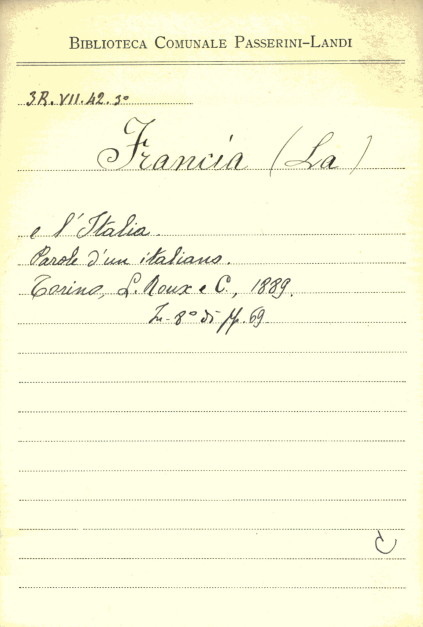 Biblioteca Comunale Passerini-Landi
3R. VII. 42. 3º
Francia (La)
e l'Italia.
Parole d'un italiano.
Torino, L. Roux e C., 1889.
In-8º di pp. 69.
C